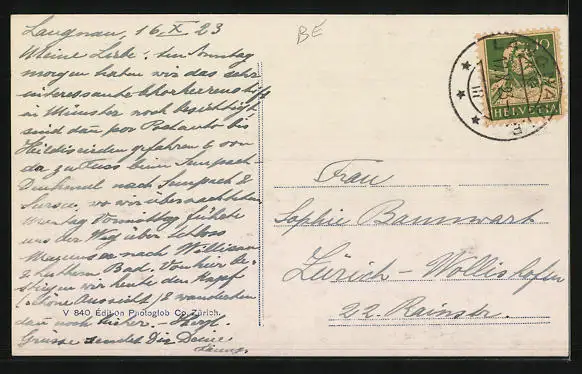 Langnau, 16. X. 23
Meine Liebe! Am Sonntag
morgen haben wir das sehr
interessante Chorherrenstift
in Münster noch besichtigt
sind dann per Postauto bis
Hildisrieden gefahren & von
da zu Fuss beim Sempach-
Denkmal nach Sempach &
Sursee, wo wir übernachteten.
Montag Vormittag führte
uns der Weg über Schloss
nach Willisau
& Luthern Bad. Von hier be-
stiegen wir heute den Napf
(schöne Aussicht) & wanderten
dann noch hieher. - Herzl.
Grüsse sendet Dir Deine
BE
10
HELVETIA
Frau
Sophie Baumwart
Zürich-Wollishofen
22. Rainstr.
V 840 Edition Photoglob Co. Zürich.